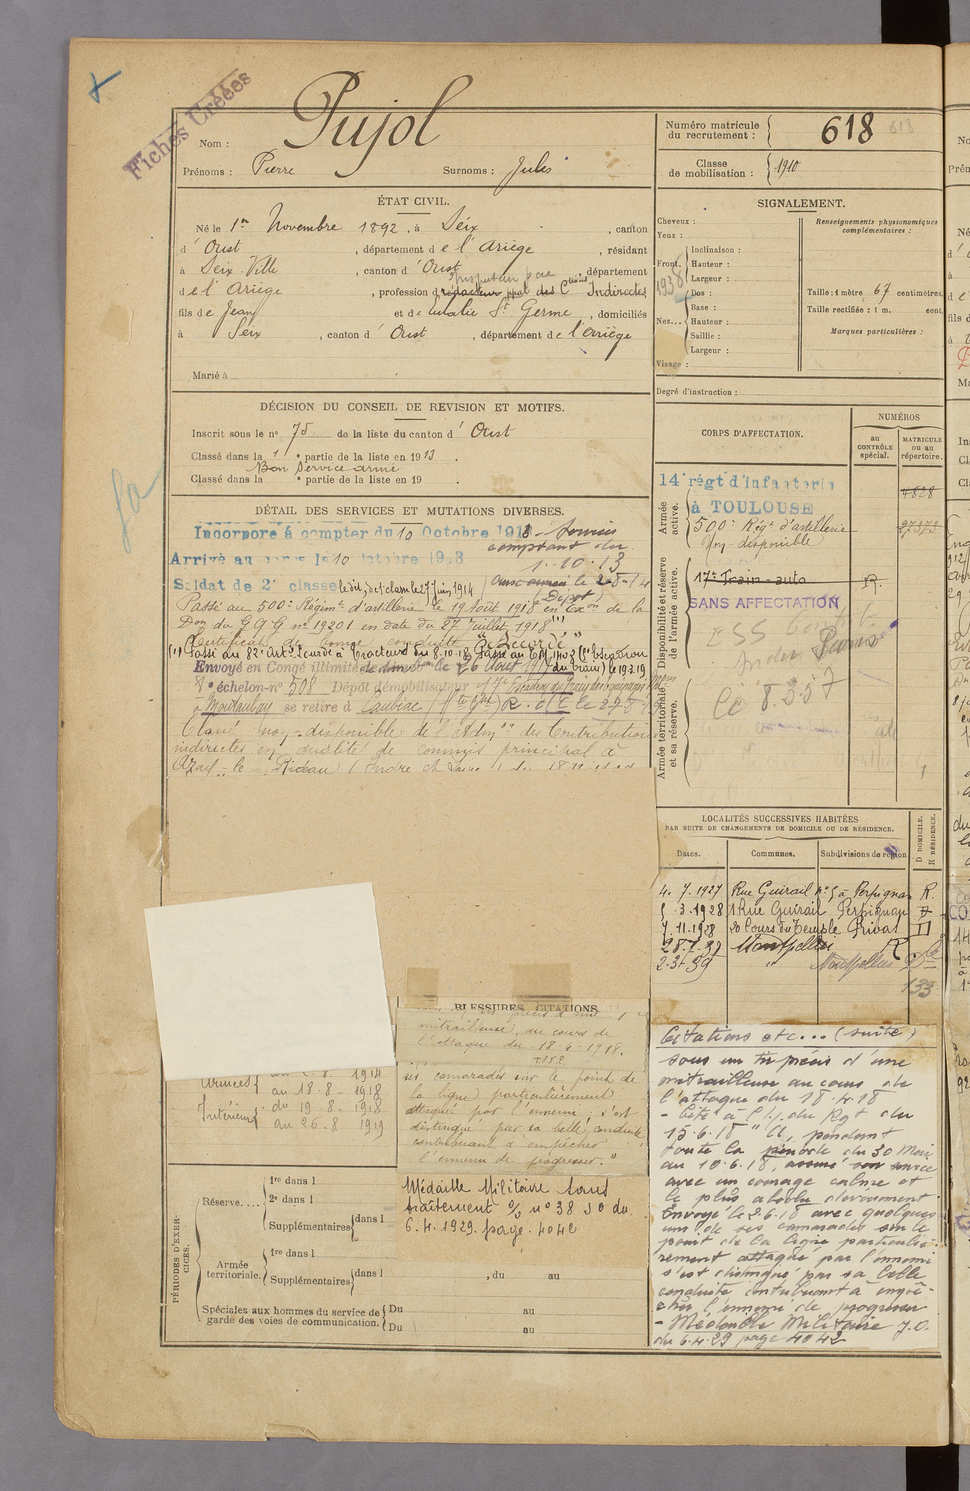 Fiches Créées
Nom : Pujol
Prénoms : Pierre Surnoms : Jules
Numéro matricule du recrutement : 618
Classe de mobilisation : 1910
ÉTAT CIVIL.
Né le 1er Novembre 1892, à Seix, canton
d'Oust, département de l'Ariège, résidant
à Seix Ville, canton d'Oust, département
de l'Ariège, profession d rédacteur ppal des Ctions Indirectes
fils de Jean et de Eulalie St Germe, domiciliés
à Seix, canton d'Oust, département de l'Ariège
Marié à
DÉCISION DU CONSEIL DE REVISION ET MOTIFS.
Inscrit sous le n° 75 de la liste du canton d'Oust
Classé dans la 1e partie de la liste en 1913.
Bon Service armé
Classé dans la e partie de la liste en 19 .
DÉTAIL DES SERVICES ET MUTATIONS DIVERSES.
Incorporé à compter du 10 Octobre 1913
comptant du
1.10.13
Arrivé au corps le 10 octobre 1913
Soldat de 2e classe
(Dépôt)
Passé au 500e Régimt d'artillerie le 19 Août 1918 en Exon de la
Don du G Q G n° 19201 en date du 27 juillet 1918
Certificat de bonne conduite "Accordé"
Envoyé en Congé illimité
8e échelon n° 508 Dépôt démobilisateur 17e Escadron du Train des équipages
à Montauban se retire à Caubiac
Classé non-disponible de l'Admon des Contributions
indirectes en qualité de commis principal à
Azay-le-Rideau (Indre et Loire)
SIGNALEMENT.
Cheveux :
Yeux :
Front. Inclinaison :
Hauteur :
Largeur :
Nez... Dos :
Base :
Hauteur :
Saillie :
Largeur :
Visage :
1938
Renseignements physionomiques complémentaires :
Taille : 1 mètre 67 centimètres
Taille rectifiée : 1 m. cent.
Marques particulières :
Degré d'instruction :
CORPS D'AFFECTATION.
NUMÉROS
au CONTRÔLE spécial.
MATRICULE OU AU répertoire.
Armée active.
14e régt d'infanterie
à TOULOUSE
4828
500e Rég. d'artillerie
Non-disponible
Disponibilité et réserve de l'armée active.
17e Train-auto R.
SANS AFFECTATION
Armée territoriale et sa réserve.
Le 8.3.37
LOCALITÉS SUCCESSIVES HABITÉES
PAR SUITE DE CHANGEMENTS DE DOMICILE OU DE RÉSIDENCE.
Dates. Communes. Subdivisions de région
D DOMICILE. R RÉSIDENCE.
4.7.1927 Rue Guirail n° 5 à Perpignan R.
5.3.1928 1 Rue Guirail Perpignan D
7.11.1928 20 Cours du Temple Privas D
28.7.37 Montpellier R
2.3.39 " Montpellier
133
BLESSURES, CITATIONS
mitrailleuse, au cours de
l'attaque du 18-4-1918.
ses camarades sur le point de
la ligne particulièrement
attaqué par l'ennemi, s'est
distingué par sa belle conduite
contribuant à empêcher
l'ennemi de progresser."
Médaille Militaire sans
traitement
6.4.1929. page. 4042
Armées
au 2-8-1914
au 18-8-1918
Intérieur du 19-8-1918
au 26-8-1919
PÉRIODES D'EXERCICES.
Réserve.... 1re dans l
2e dans l
Supplémentaires dans l
Armée territoriale. 1re dans l
Supplémentaires dans l , du au
Spéciales aux hommes du service de garde des voies de communication. Du au
Du au
Citations etc... (suite)
sous un tir précis d'une
mitrailleuse au cours de
l'attaque du 18.4.18
- Cité à l'O. du Rgt du
15.6.18 "A, pendant
toute la période du 30 Mai
au 10.6.18, assuré son service
avec un courage calme et
le plus absolu dévouement
Envoyé le 2.6.18 avec quelques
uns de ses camarades sur le
point de la ligne particuliè-
rement attaqué par l'ennemi
s'est distingué par sa belle
conduite contribuant à empê-
cher l'ennemi de progresser
- Médaille Militaire J.O.
du 6.4.29 page 4042